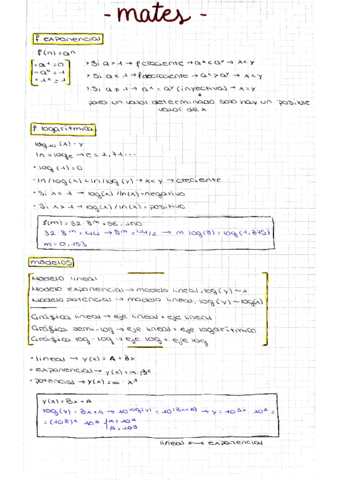 - mates -
f exponencial
f(n) = aⁿ
· a¹ = 0
· a⁰ = 1
· 1ˣ = 1
· Si a > 1 → f creciente → aˣ < aʸ → x < y
· Si a < 1 → f decreciente → aˣ > aʸ → x < y
· Si a ≠ 1 → aˣ = aʸ (inyectiva) → x = y
para un valor determinado solo hay un posible
valor de x
f logarítmica
log₁₀(x) = y
ln = logₑ → e = 2,71...
· log(1) = 0
· ln/log(x) < ln/log(y) → x < y → creciente
· Si x < 1 → log(x)/ln(x) = negativo
· Si x > 1 → log(x)/ln(x) = positivo
32·8ᵐ = 44 → 8ᵐ = 44/32 → m log(8) = log(1,375)
m = 0,153
modelos
Modelo lineal
Modelo exponencial → modelo lineal, log(y) ~ x
Modelo potencial → modelo lineal, log(y) ~ log(x)
Gráfica lineal → eje lineal + eje lineal
Gráfica semi-log → eje lineal + eje logarítmico
Gráfica log-log → eje log + eje log
· lineal → y(x) = A + Bx
· exponencial → y(x) = α·βˣ
· potencial → y(x) = α·xᵝ
y(x) = Bx + A
log(y) = Bx + A → 10^log(y) = 10^(Bx+A) → y = 10^Bx · 10^A =
= (10^B)ˣ · 10^A
α = 10^A
β = 10^B
lineal ⟷ exponencial